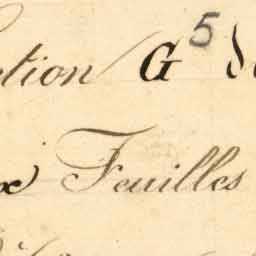 ction G 5
Feuilles